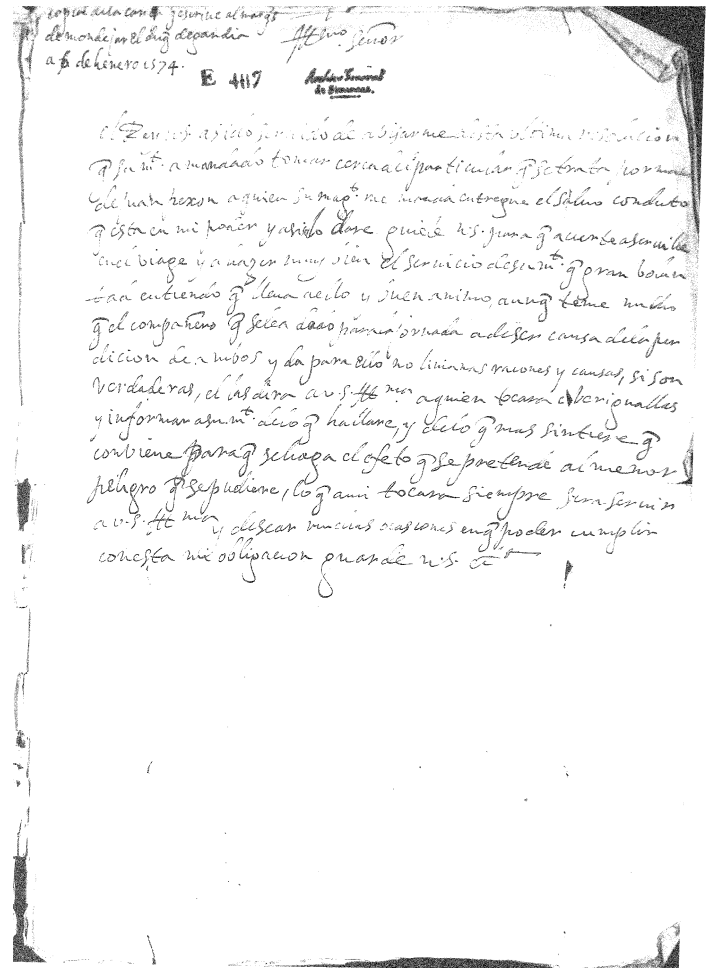 copia de la carta q escrive al marqs
de mondejar el duq de gandia
a 6 de henero 1574.
Illmo señor
E 407
Archivo General
de Simancas.
el Rey nos a sido servido de abisarme desta ultima resolucion
q su mt. a mandado tomar cerca del particular q se trata por
de juan rexon a quien su magt. me manda entregue el salvo conduto
q esta en mi poder y asi lo dare guiele n.s. para q acierte a serville
en el viage y a hazer muy bien el servicio de su mt. q gran bolun
tad entiendo q lleva a ello y buen animo, aunq teme mucho
q el compañero q se le a dado para la jornada a de ser causa de la per
dicion de ambos y da para ello no livianas razones y causas, si son
verdaderas, el las dira a v.s. Illma a quien tocara aberiguallas
y informar a su mt. de lo q hallare, y de lo q mas sintiere q
conviene para q se haga el efeto q se pretende al menor
peligro q se pudiere, lo q a mi tocara siempre sera servir
a v.s. Illma y desear muchas ocasiones en q poder cumplir
con esta mi obligacion guarde n.s. etc